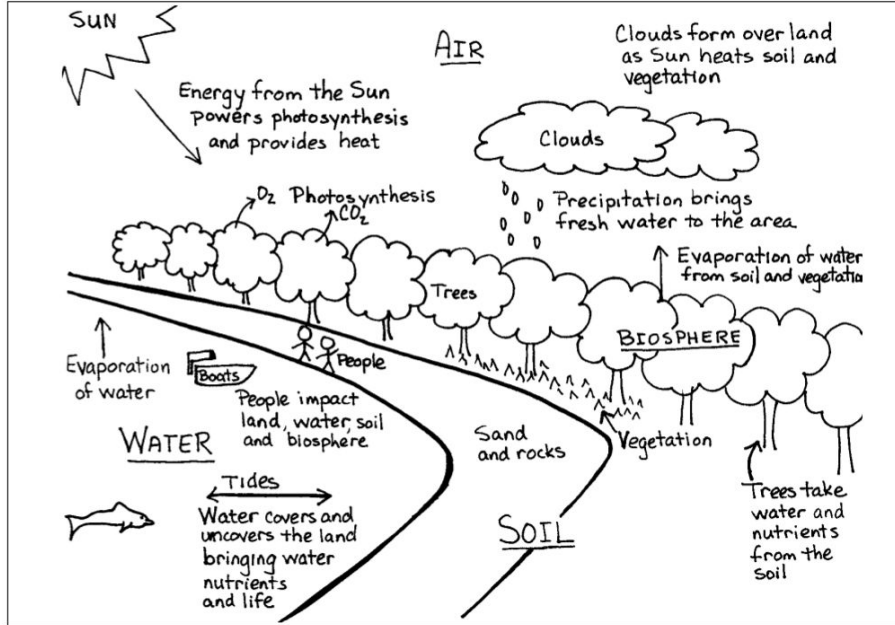 SUN
AIR
Clouds form over land
as Sun heats soil and
vegetation
Energy from the Sun
powers photosynthesis
and provides heat
Clouds
O2 Photosynthesis
CO2
Precipitation brings
fresh water to the area
Evaporation of water
from soil and vegetatio
Trees
BIOSPHERE
Evaporation
of water
Boats
People
People impact
land, water, soil
and biosphere
WATER
Sand
and rocks
Vegetation
Tides
Water covers and
uncovers the land
bringing water
nutrients
and life
SOIL
Trees take
water and
nutrients
from the
soil